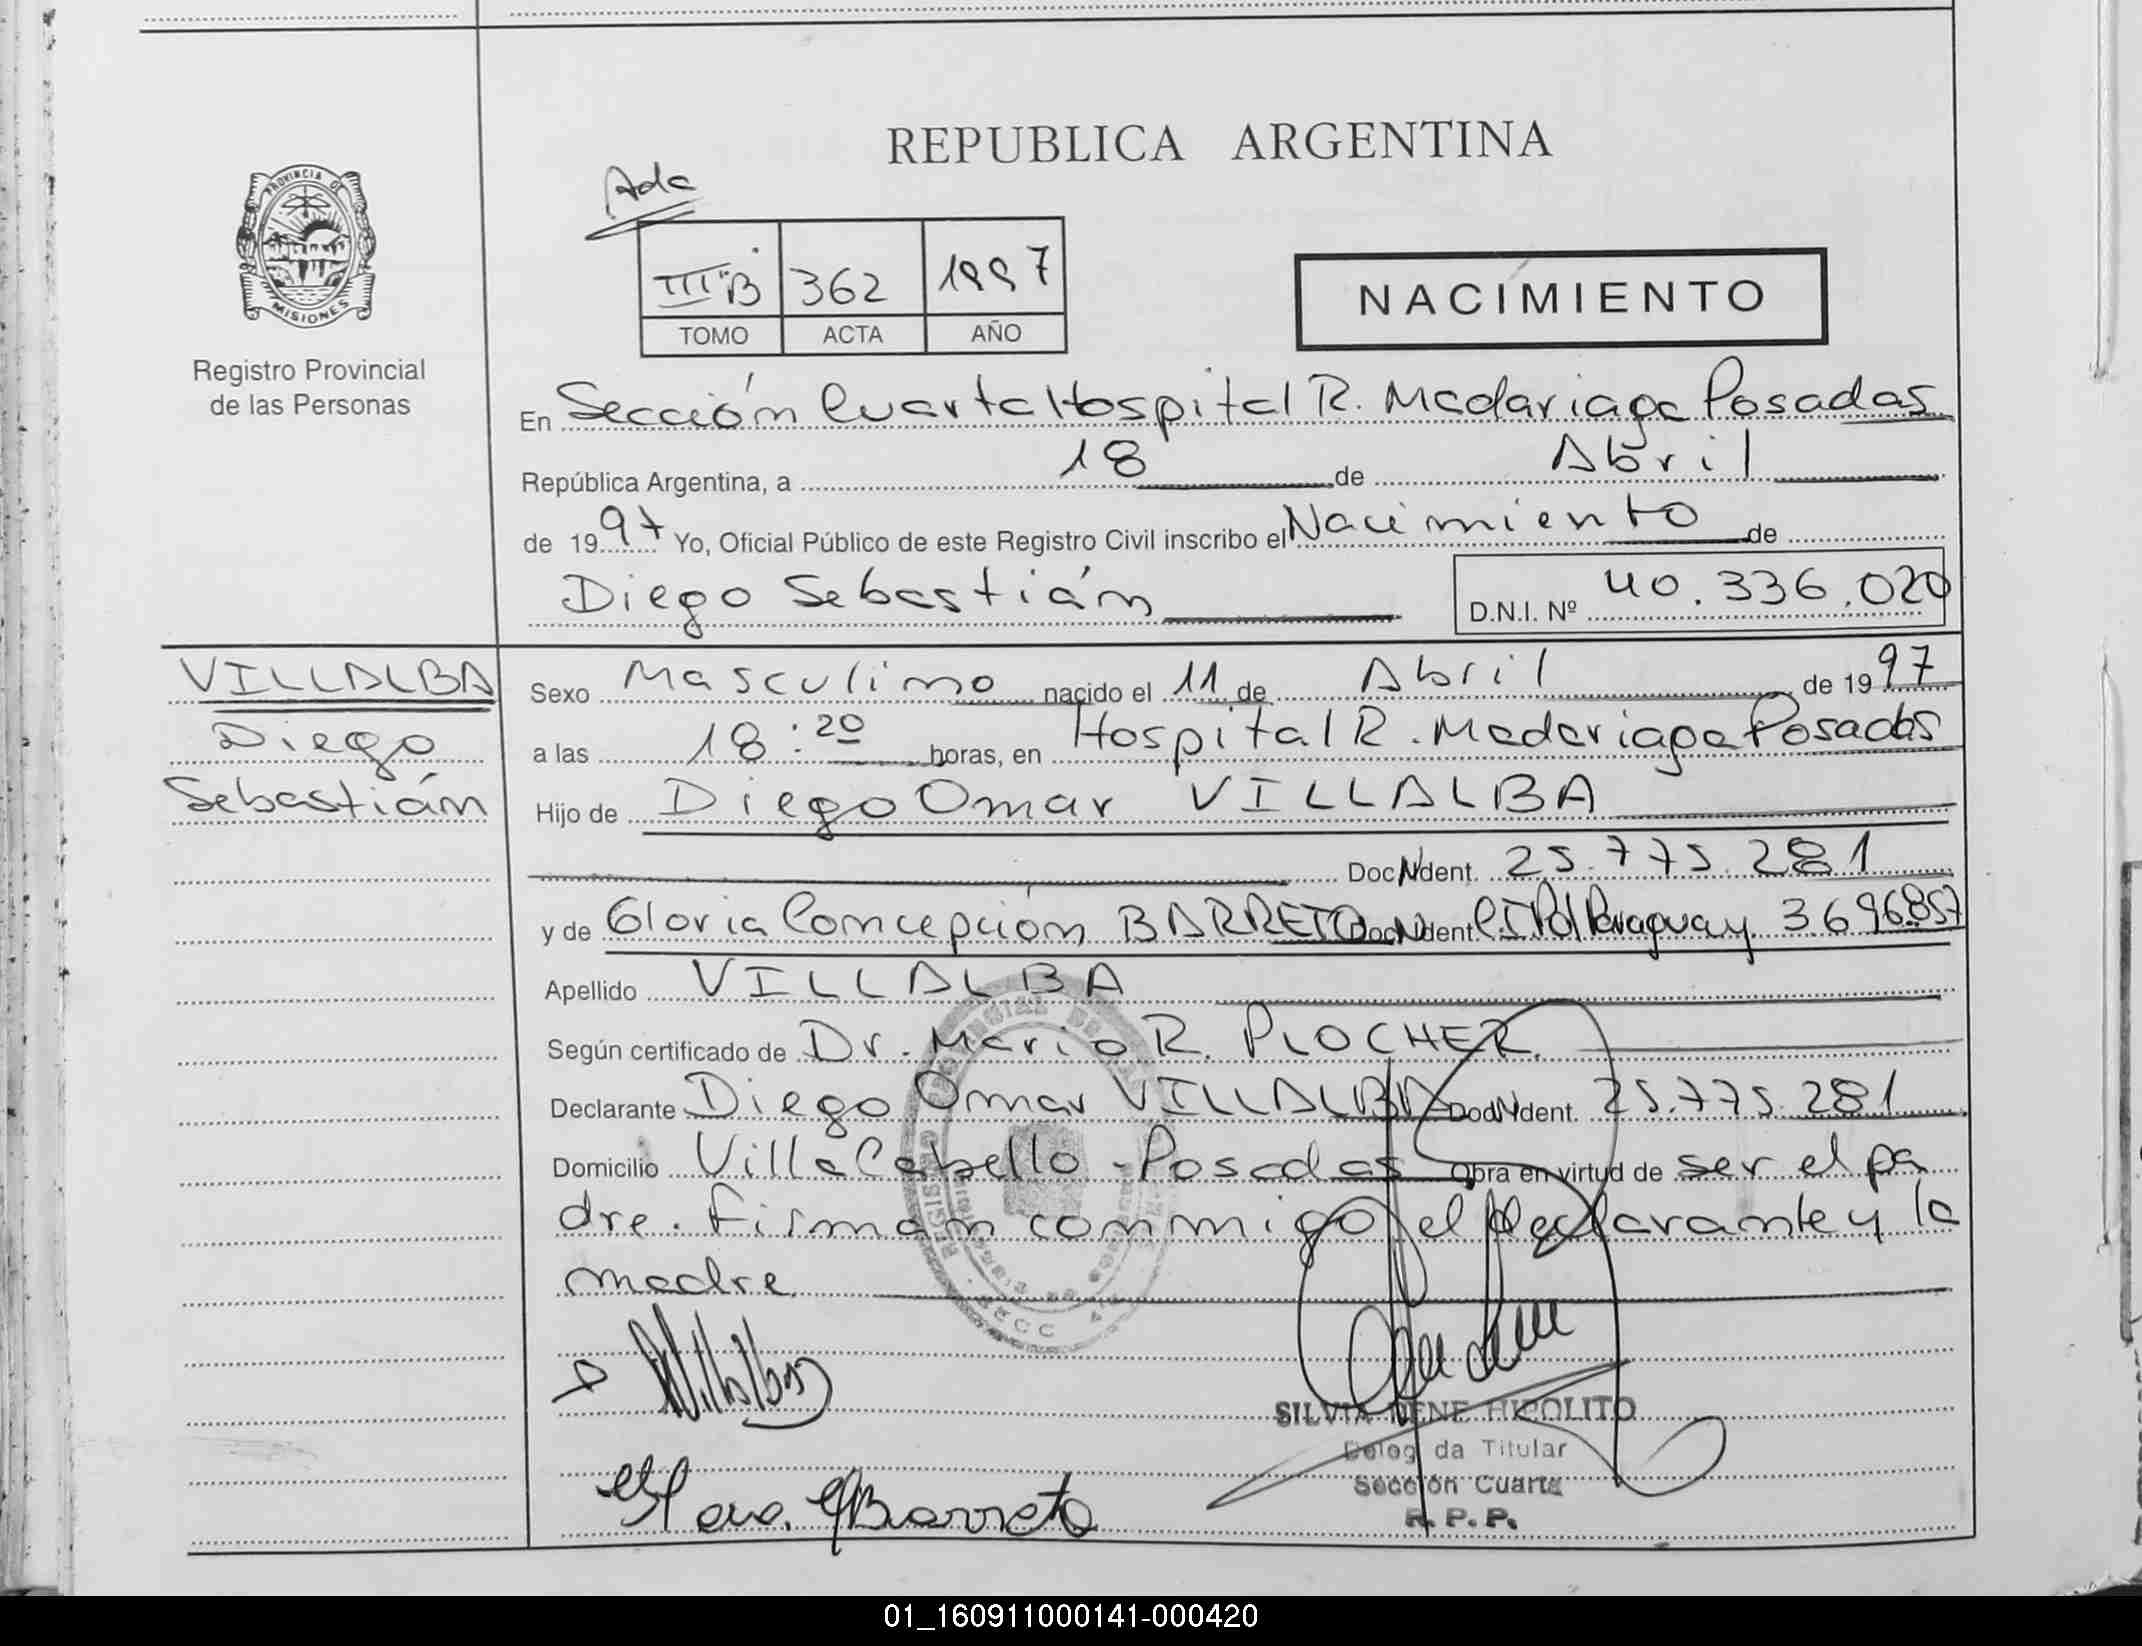 REPUBLICA ARGENTINA
PROVINCIA DE
MISIONES
Registro Provincial
de las Personas
III "B" 362 1997
TOMO ACTA AÑO
NACIMIENTO
En Sección Cuarta Hospital R. Madariaga Posadas
República Argentina, a 18 de Abril
de 1997 Yo, Oficial Público de este Registro Civil inscribo el Nacimiento de
Diego Sebastián D.N.I. Nº 40.336.020
VILLALBA
Diego
Sebastián
Sexo Masculino nacido el 11 de Abril de 1997
a las 18:20 horas, en Hospital R. Madariaga Posadas
Hijo de Diego Omar VILLALBA
Doc. Ident. 25.775.281
y de Gloria Concepción BARRETO Doc. Ident. C.I. Pol Paraguay 3.696.857
Apellido VILLALBA
Según certificado de Dr. Mario R. PLOCHER
Declarante Diego Omar VILLALBA Doc. Ident. 25.775.281
Domicilio Villa Cabello - Posadas Obra en virtud de ser el pa
dre. Firman conmigo el declarante y la
madre
Villalba
Barreto
SILVIA IRENE HIPOLITO
Delegada Titular
Sección Cuarta
R. P. P.
01_160911000141-000420